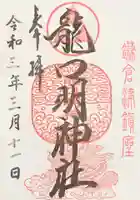 鎌倉深鎮座
奉拝
龍口明神社
令和三年三月十一日